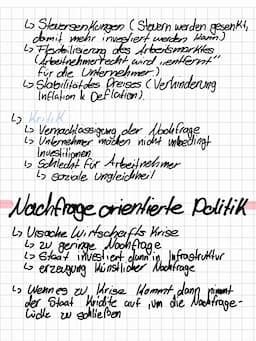 ↳ Steuersenkungen (Steuern werden gesenkt,
damit mehr investiert werden kann)
↳ Flexibilisierung des Arbeitsmarktes
(Arbeitnehmerrecht wird „entfernt"
für die Unternehmer)
↳ Stabilität des Preises (Verhinderung
Inflation & Deflation)
↳ Kritik
↳ Vernachlässigung der Nachfrage
↳ Unternehmer machen nicht unbedingt
Investitionen
↳ Schlecht für Arbeitnehmer
↳ soziale ungleichheit
Nachfrage orientierte Politik
↳ Ursache Wirtschafts Krise
↳ zu geringe Nachfrage
↳ Staat investiert dann in Infrastruktur
↳ erzeugung künstlicher Nachfrage
↳ Wenn es zu Krise kommt dann nimmt
der Staat Kridite auf, um die Nachfrage-
Lücke zu schließen